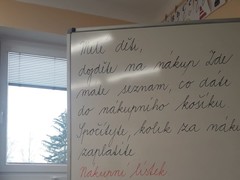 Milé děti,
dojděte na nákup. Zde
máte seznam, co dáte
do nákupního košíku
Spočítejte, kolik za náku
zaplatíte
Nákupní lístek